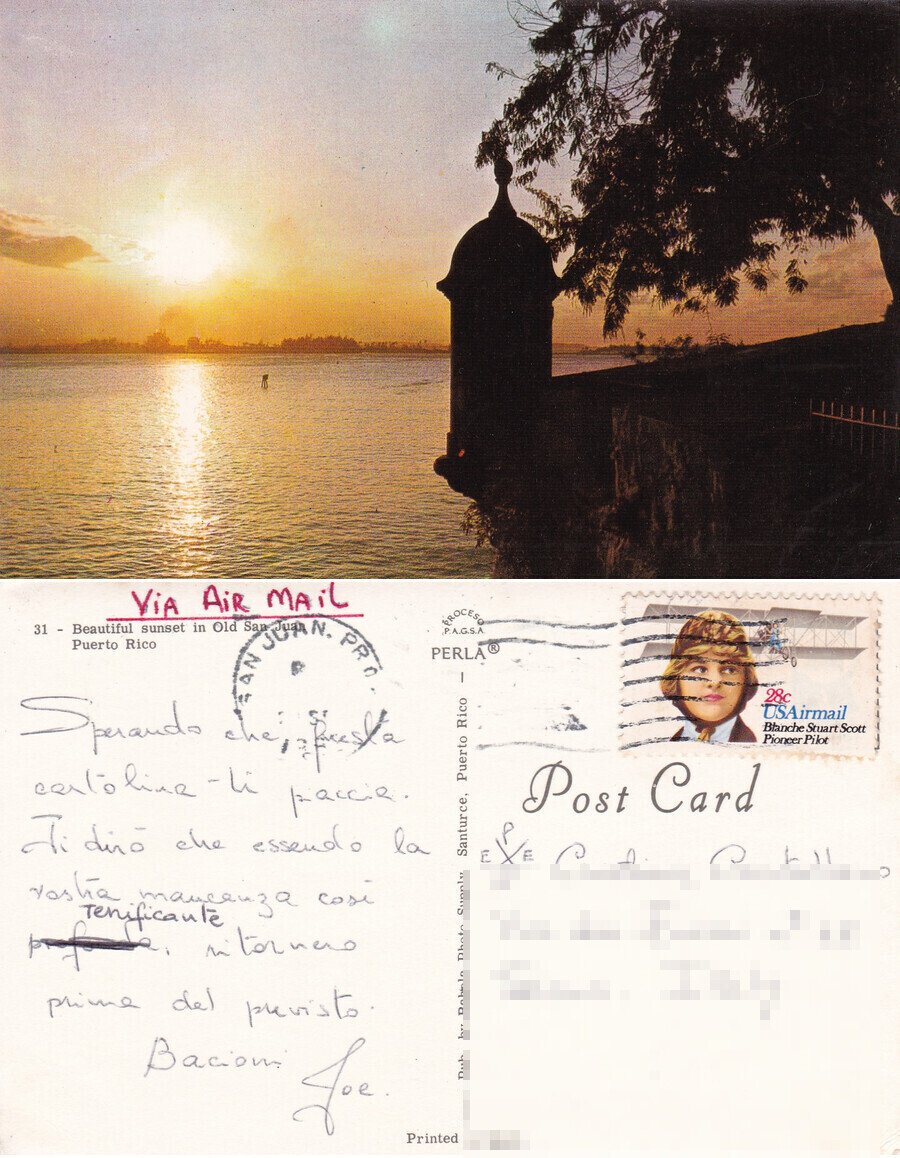 VIA AIR MAIL
31 - Beautiful sunset in Old San Juan
Puerto Rico
SAN JUAN, PR
PROCESO
P.A.G.S.A.
PERLA®
28c
USAirmail
Blanche Stuart Scott
Pioneer Pilot
Post Card
Sperando che questa
cartolina ti paccia.
Ti dirò che essendo la
vostra mancanza così
Terrificante
ritornerò
prima del previsto.
Bacioni
Joe.
Photo Supply, Santurce, Puerto Rico —
Printed